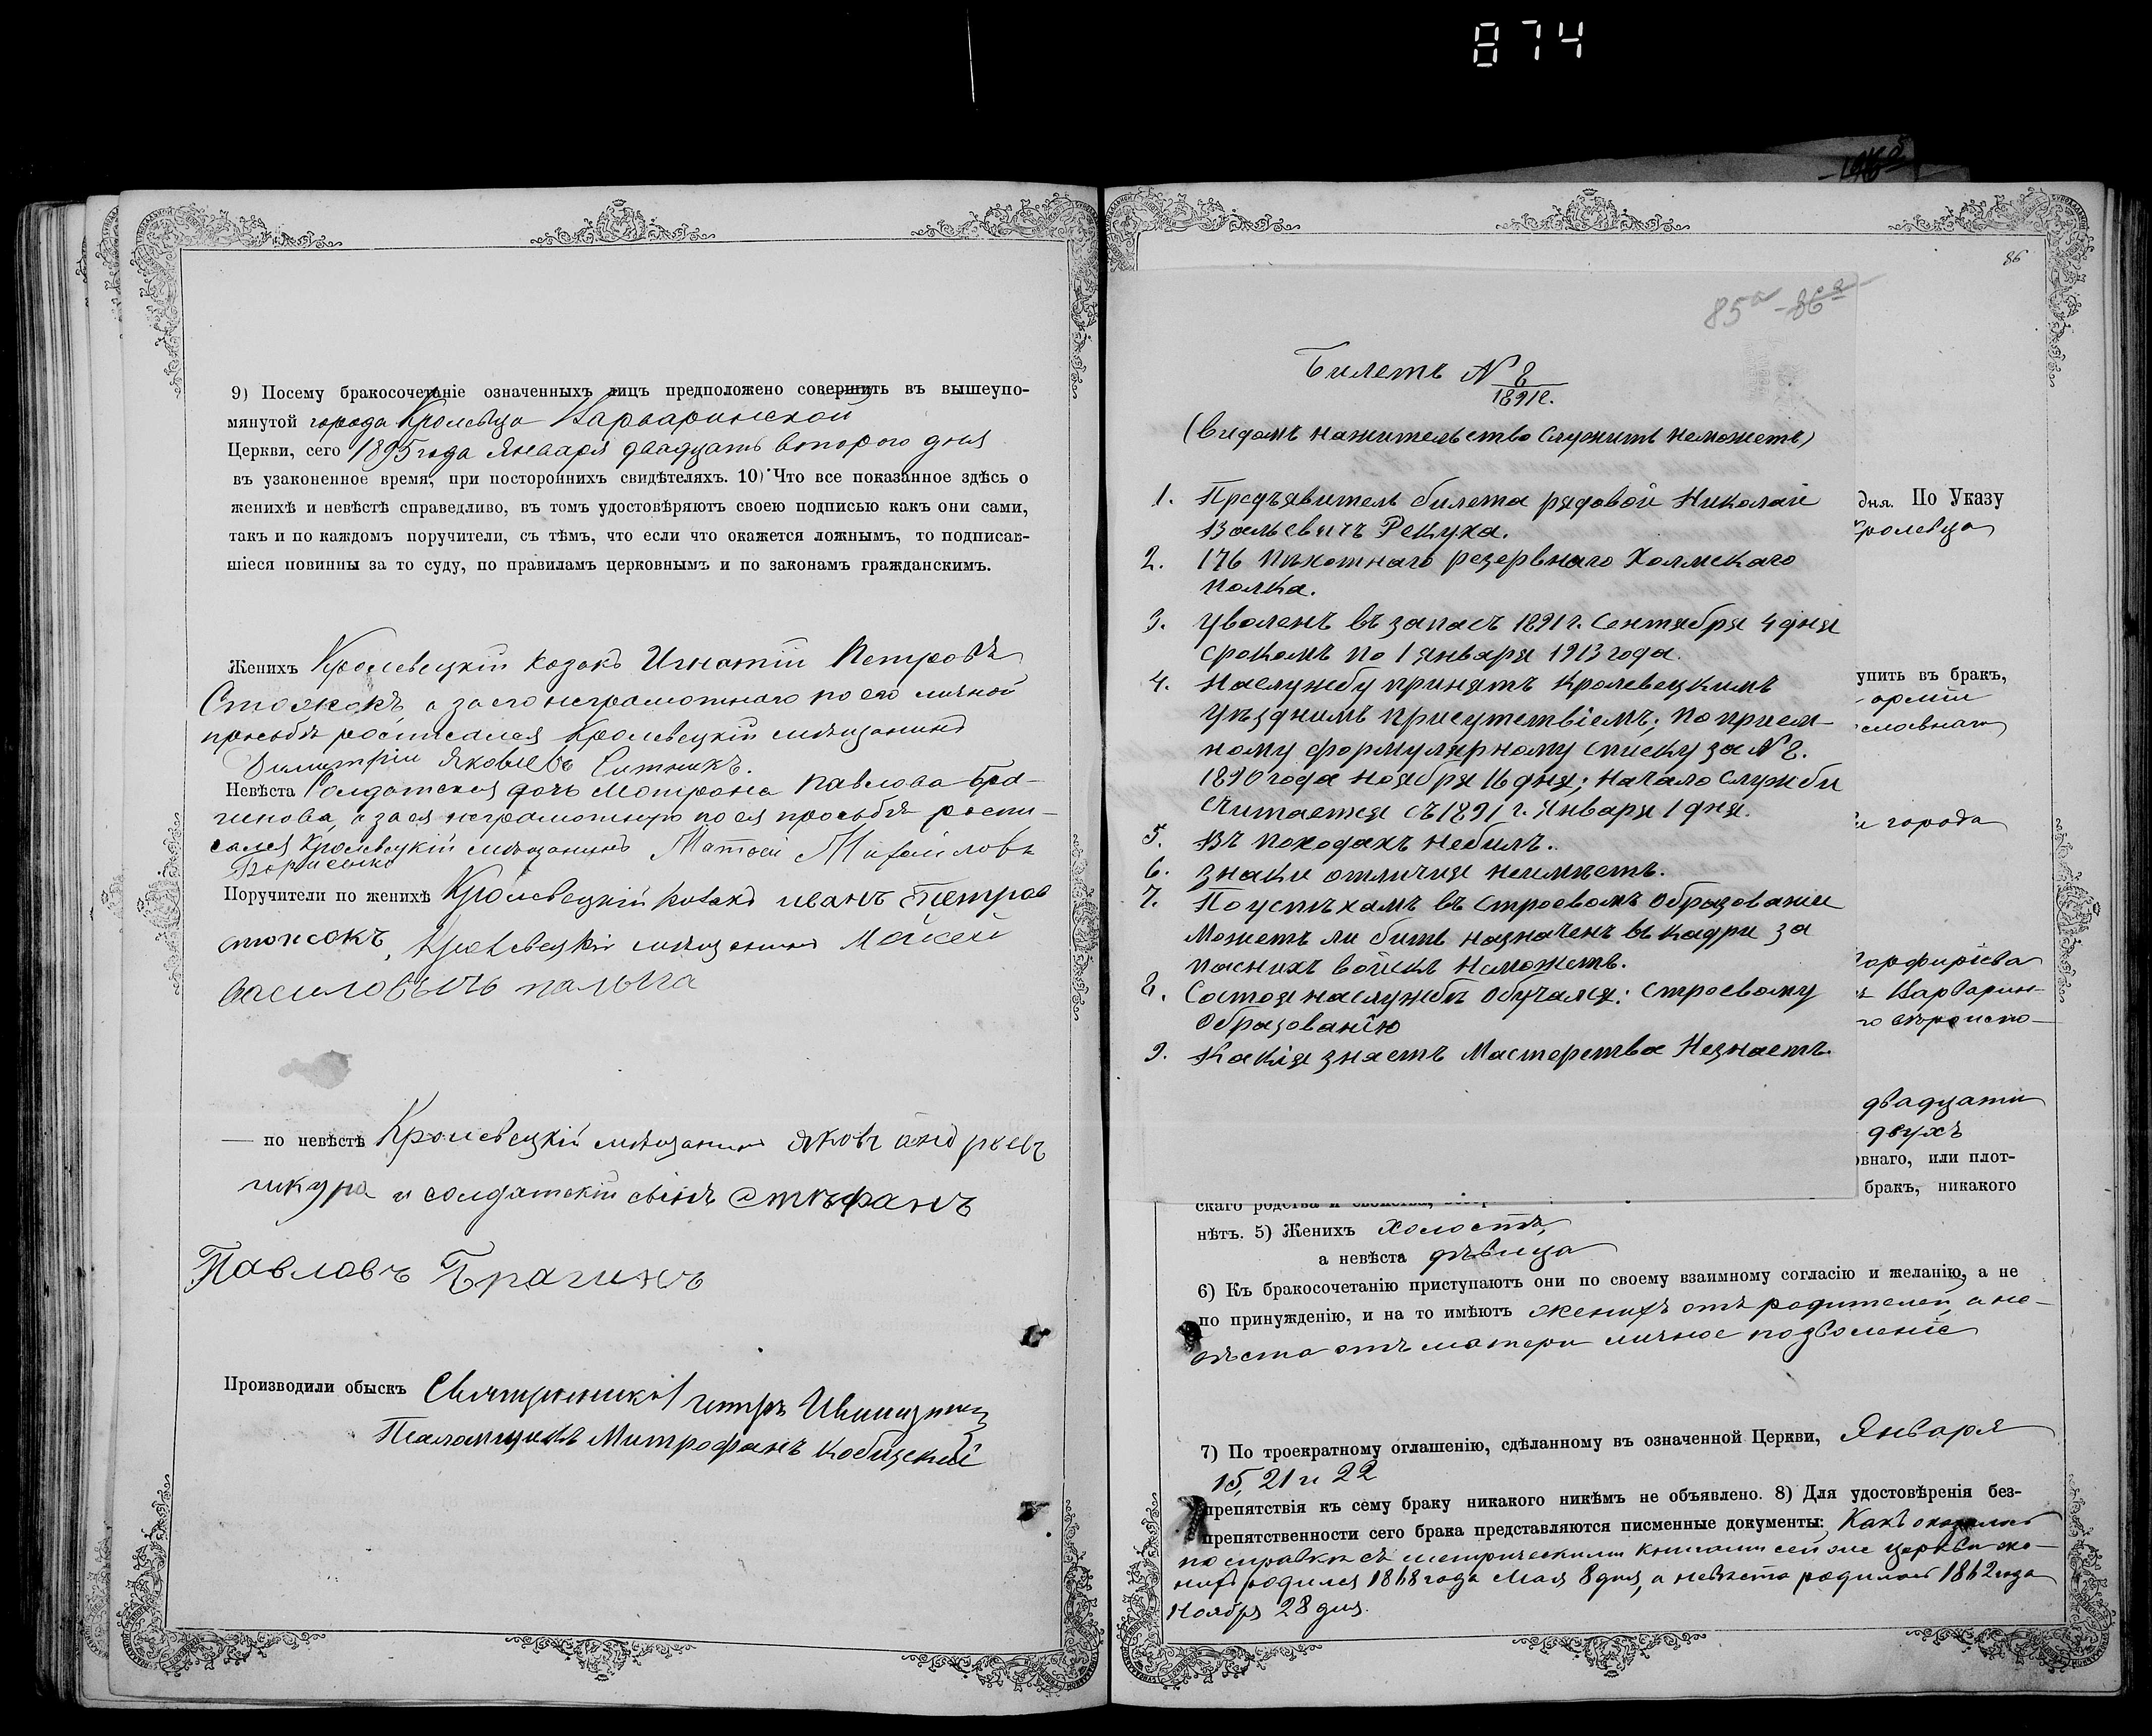 874
9) Посему бракосочетаніе означенныхъ лицъ предположено совершить въ вышеупо-
мянутой города Кролевца Варваринской
Церкви, сего 1895 года Января двадцать второго дня
въ узаконенное время, при постороннихъ свидѣтеляхъ. 10) Что все показанное здѣсь о
женихѣ и невѣстѣ справедливо, въ томъ удостовѣряютъ своею подписью какъ они сами,
такъ и по каждомъ поручители, съ тѣмъ, что если что окажется ложнымъ, то подписав-
шіеся повинны за то суду, по правиламъ церковнымъ и по законамъ гражданскимъ.
Женихъ Кролевецкій козакъ Игнатій Петровъ
а за его неграмотнаго по его личной
просьбѣ росписался Кролевецкій мѣщанинъ
Димитрій Яковлевъ Ситникъ.
Невѣста Солдатская дочь Матрона Павлова Бра-
гинова, а за ея неграмотную по ея просьбѣ роспи-
сался Кролевецкій мѣщанинъ Матвей Михаиловъ
Борисенко
Поручители по женихѣ Кролевецкій козакъ иванъ Петров
Кролевецкій мѣщанинъ Мойсей
василовычъ
— по невѣстѣ Кролевецкій мѣщанинъ яковъ андреевъ
чикура и солдатскій сынъ Стефанъ
Павловъ Брагинъ
Производили обыскъ Священникъ Петръ
Псаломщикъ Митрофанъ Кобицскій
86
85а - 86а
Билетъ № 8
1891 г.
(видомъ нажительство служить неможетъ)
1. Предъявитель билета рядовой Николай
Васьевичъ Рекуха.
2. 176 пѣхотнаго резервнаго Холмскаго
полка.
3. Уволенъ въ запасъ 1891 г. Сентября 4 дня
срокомъ по 1 января 1913 года.
4. Наслужбу принятъ Кролевецкимъ
уѣзднимъ присутствіемъ; по прием-
ному формулярному списку за № 8.
1890 года ноября 16 дня; начало службы
считается съ 1891 г. Января 1 дня.
5. Въ походахъ небылъ.
6. Знаки отличія неимѣетъ.
7. По успѣхамъ въ строевомъ образованіи
можетъ ли быть назначенъ въ кадри за
пасныхъ войскъ неможетъ.
8. Состоя наслужбѣ обучался: строевому
образованію
9. Какія знаетъ мастерства Незнаетъ.
дня. По Указу
Кролевца
упить въ бракъ,
арміи
славнаго
и города
Порфиріева
Варварин-
двадцати
двухъ
овнаго, или плот-
бракъ, никакого
скаго родства и
нѣтъ. 5) Женихъ холостъ,
а невѣста дѣвица
6) Къ бракосочетанію приступаютъ они по своему взаимному согласію и желанію, а не
по принужденію, и на то имѣютъ женихъ отъ родителей, а не-
вѣста отъ матери личное позволеніе
7) По троекратному оглашенію, сдѣланному въ означенной Церкви, Января
15, 21 и 22
препятствія къ сему браку никакого никѣмъ не объявлено. 8) Для удостовѣренія без-
препятственности сего брака представляются писменные документы: Какъ оказалось
по справкѣ съ метрическими книгами сей же церкви же-
нихъ родился 1868 года Мая 8 дня, а невѣста родилась 1872 года
Ноября 28 дня.